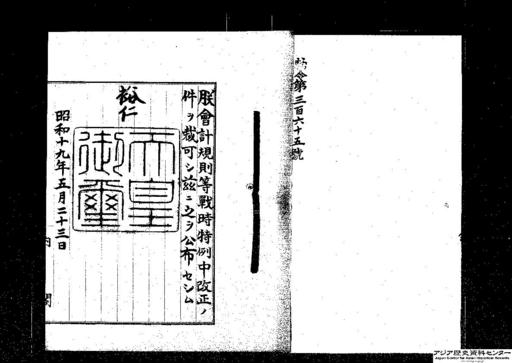 勅令第三百六十五號
朕會計規則等戰時特例中改正ノ
件ヲ裁可シ茲ニ之ヲ公布セシム
裕仁
天皇
御璽
昭和十九年五月二十三日
内閣
アジア歴史資料センター
Japan Center for Asian Historical Records